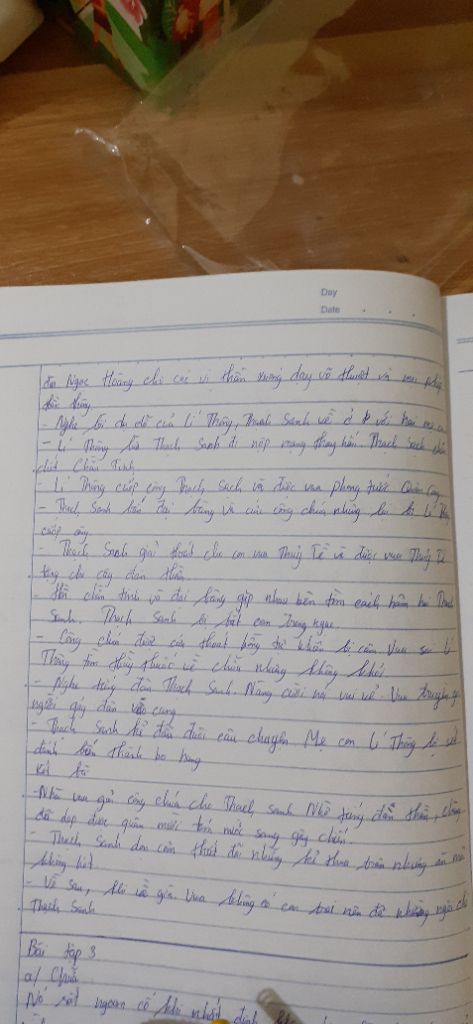 Day
Date . . .
Ngọc Hoàng cho các vị thần xuống dạy võ thuật và mọi phép
thần thông
- Nghe lời dụ dỗ của Lí Thông, Thạch Sanh về ở với hai mẹ con
- Lí Thông lừa Thạch Sanh đi nộp mạng thay hắn. Thạch Sanh
chết Chằn Tinh
- Lí Thông cướp công Thạch Sanh và được vua phong tước Quận Công
- Thạch Sanh bắn đại bàng và cứu công chúa nhưng lại bị Lí Thông
cướp công
- Thạch Sanh giải thoát cho con vua Thuỷ Tề và được vua Thuỷ Tề
tặng cho cây đàn thần
- Hồn chằn tinh và đại bàng gặp nhau bèn tìm cách hãm hại Thạch
Sanh. Thạch Sanh bị bắt
- Công chúa được cứu thoát bỗng bị câm. Vua sai Lí
Thông tìm thầy thuốc về chữa nhưng không khỏi
- Nghe tiếng đàn Thạch Sanh. Nàng cười nói vui vẻ. Vua truyền gọi
người gảy đàn vào cung
- Thạch Sanh kể đầu đuôi câu chuyện Mẹ con Lí Thông bị sét
đánh biến thành bọ hung
Kết bài
- Nhà vua gả công chúa cho Thạch Sanh. Nhờ tiếng đàn thần, chàng
đã dẹp được quân mười tám nước sang gây chiến.
- Thạch Sanh dọn cơm thết đãi những kẻ thua trận nhưng ăn mãi
không hết
- Về sau, khi về già Vua không có con trai nên đã nhường ngôi cho
Thạch Sanh
Bài tập 3
a/ Chưa
Nó rất ngoan cố